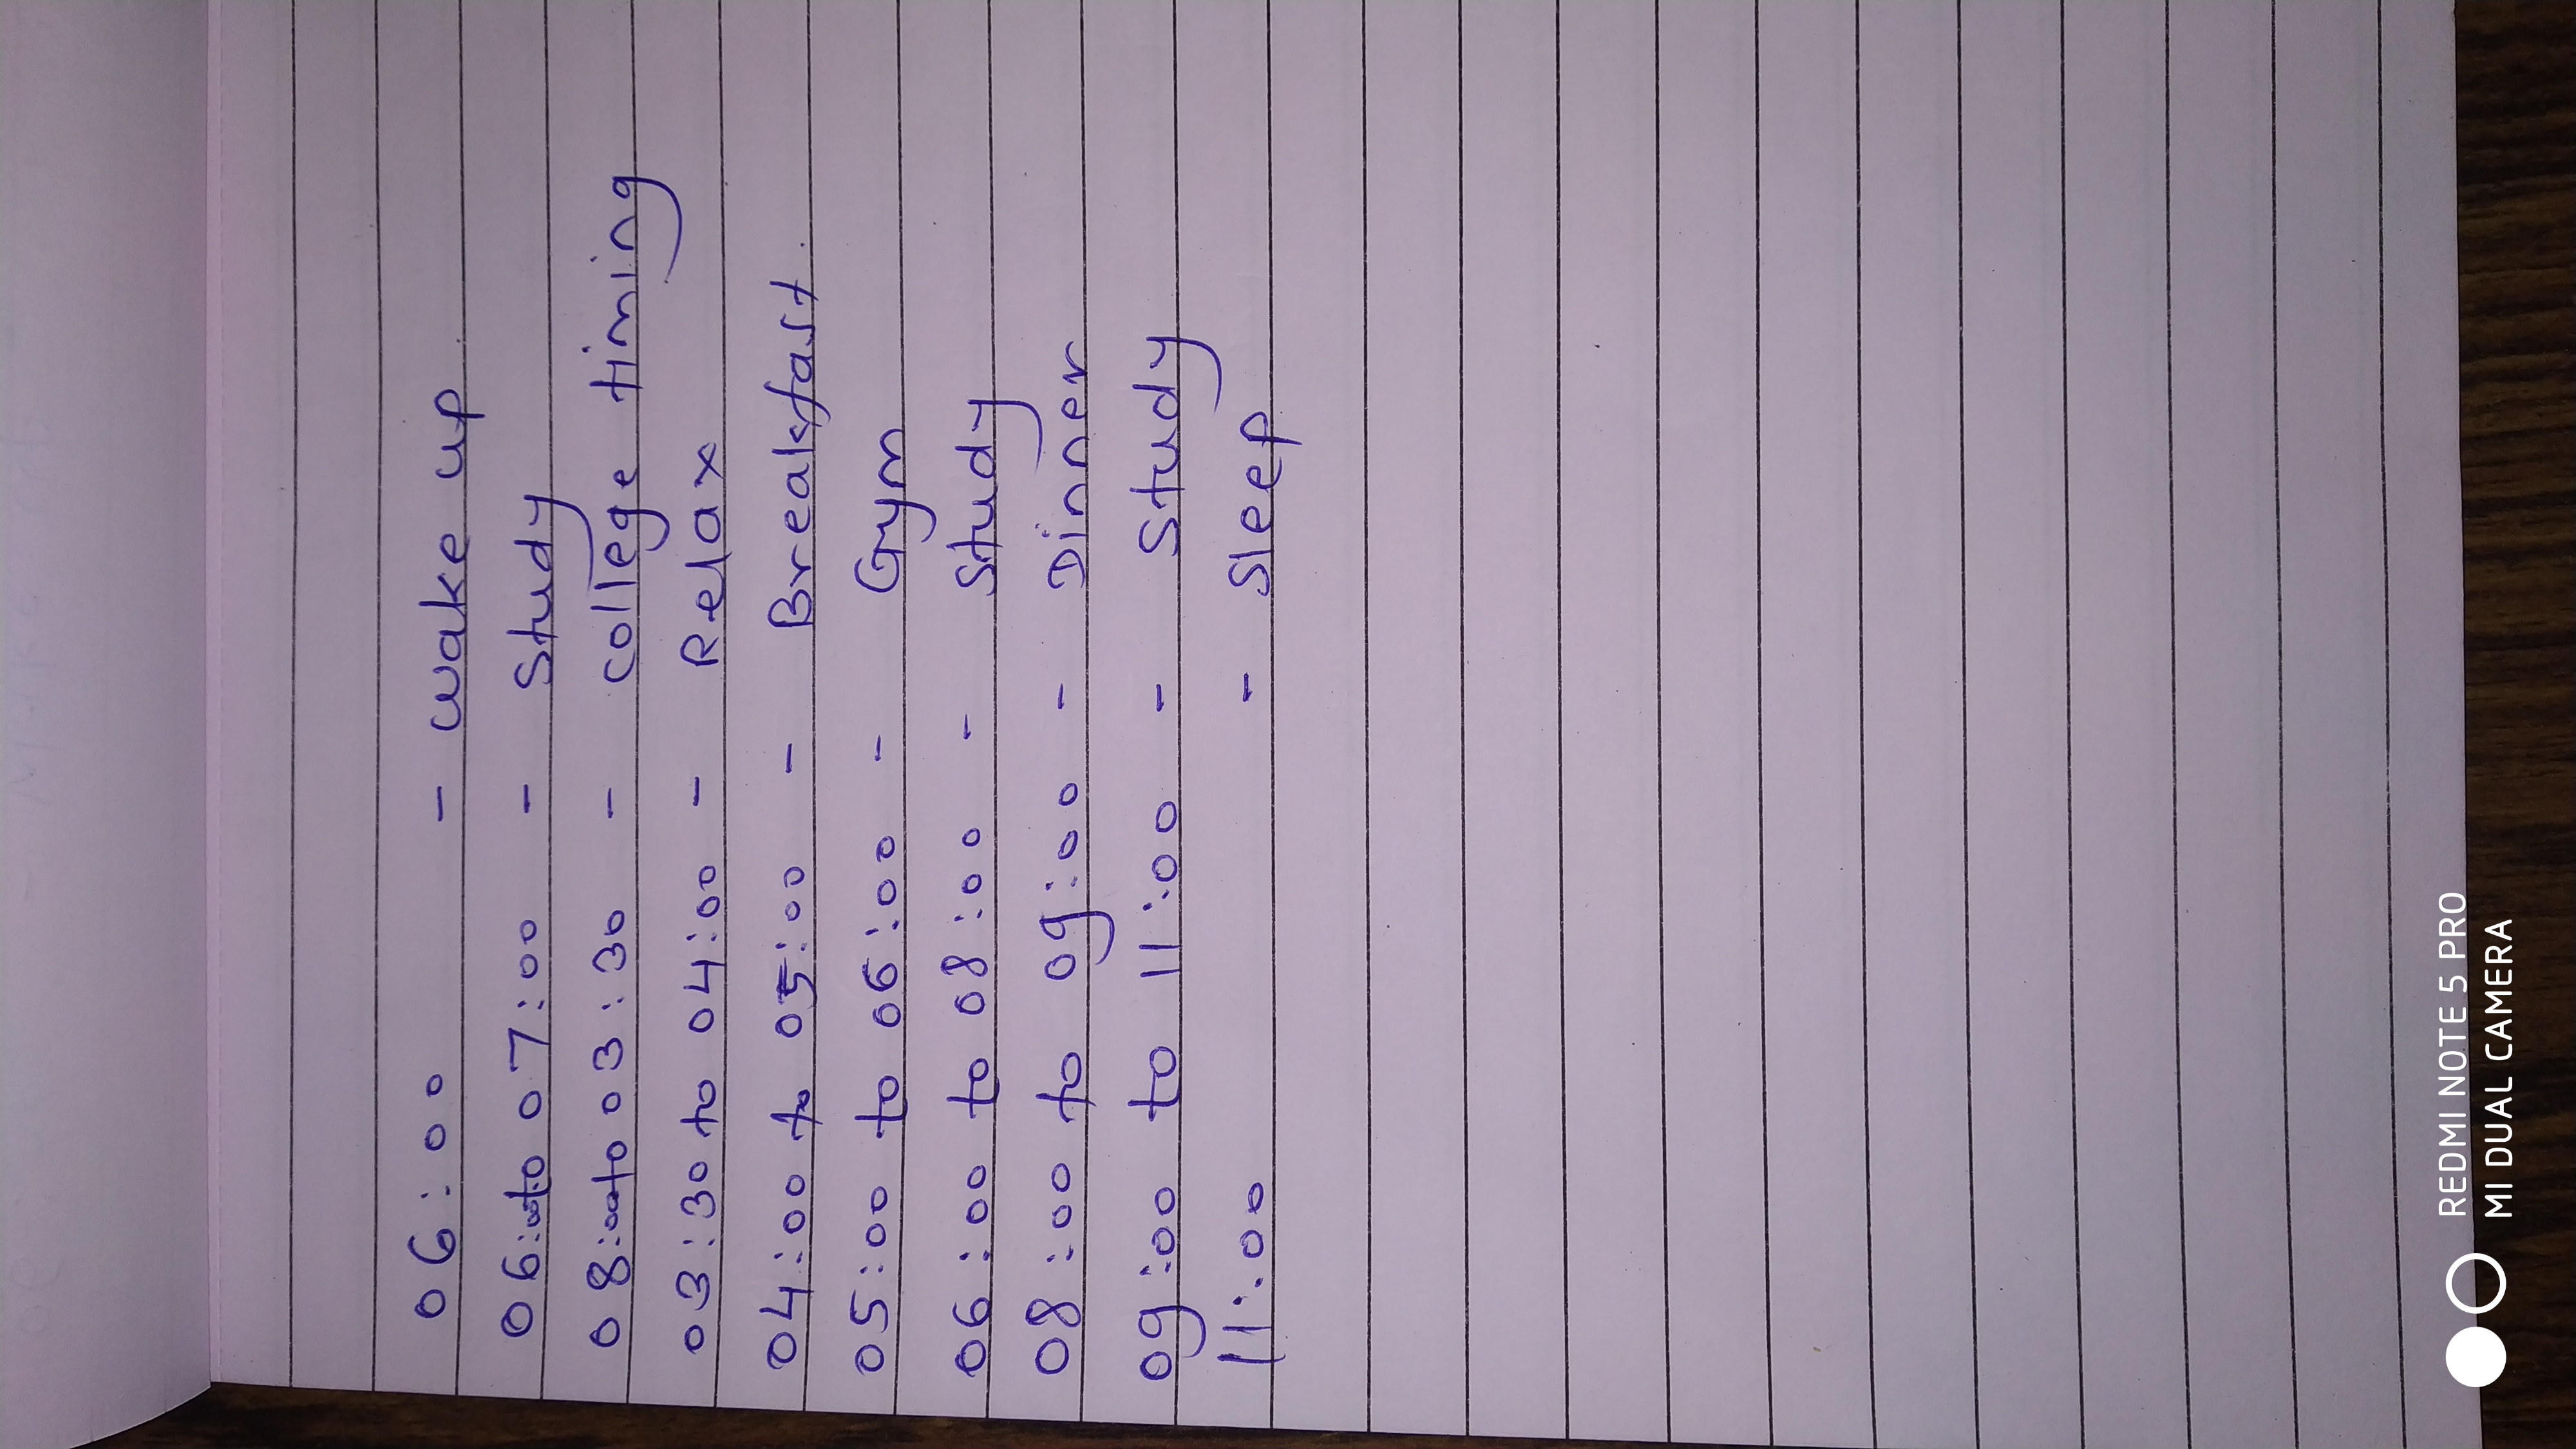 06:00 - wake up
06:00 to 07:00 - Study
08:00 to 03:30 - college timing
03:30 to 04:00 - Relax
04:00 to 05:00 - Breakfast.
05:00 to 06:00 - Gym
06:00 to 08:00 - Study
08:00 to 09:00 - Dinner
09:00 to 11:00 - Study
11:00 - Sleep
REDMI NOTE 5 PRO
MI DUAL CAMERA